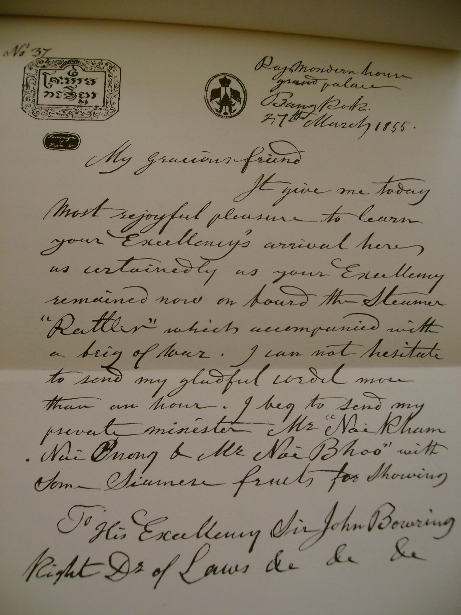 No 37
Raj Mondern house
grand palace
Bangkok
27th March 1855.
My gracious friend
It give me today
most rejoyful pleasure to learn
your Excellency's arrival here,
as certainedly as your Excellency
remained now on board the Steamer
"Rattler" which accompanied with
a brig of war. I can not hesitate
to send my gladful cordel more
than an hour. I beg to send my
private minister Mr "Nai Kham
Nai Bhoo" with
Some Siamese fruits for Showing
To His Excellency Sir John Bowring
Right Dr of Laws &c &c &c